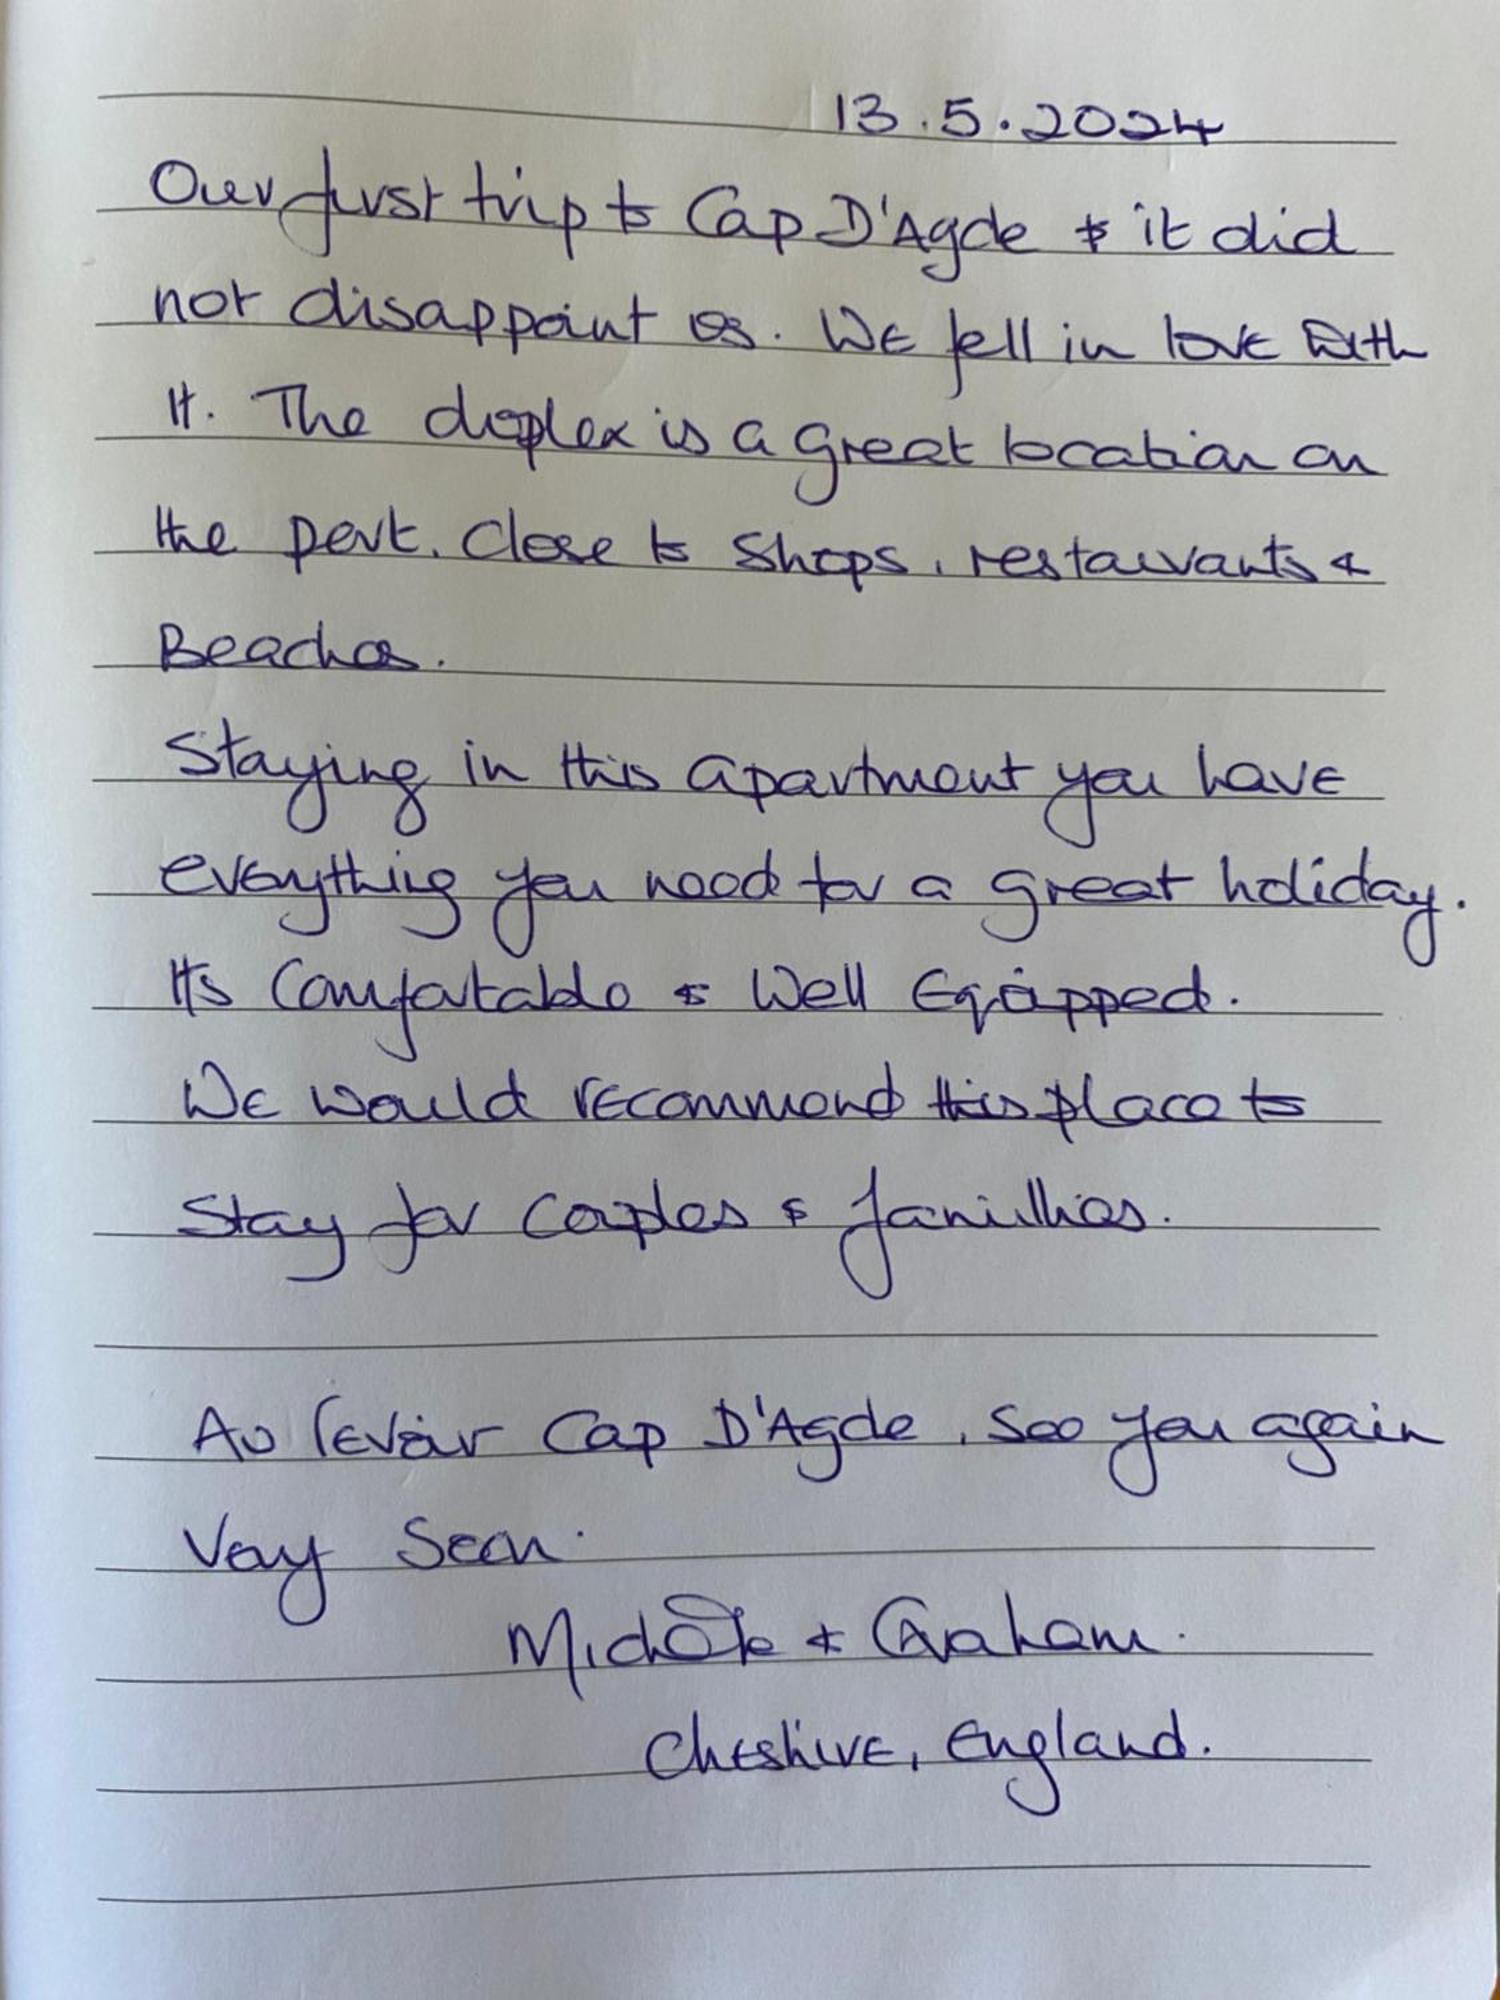 13.5.2024
Our first trip to Cap D'Agde & it did
not disappoint us. We fell in love with
it. The duplex is a great location on
the port. Close to shops, restaurants &
Beaches.
Staying in this apartment you have
everything you need for a great holiday.
Its Comfortable & Well Equipped.
We would recommend this place to
Stay for Couples & famillies.
Au revoir Cap D'Agde, See you again
Very Soon.
Michele & Graham.
Cheshire, England.